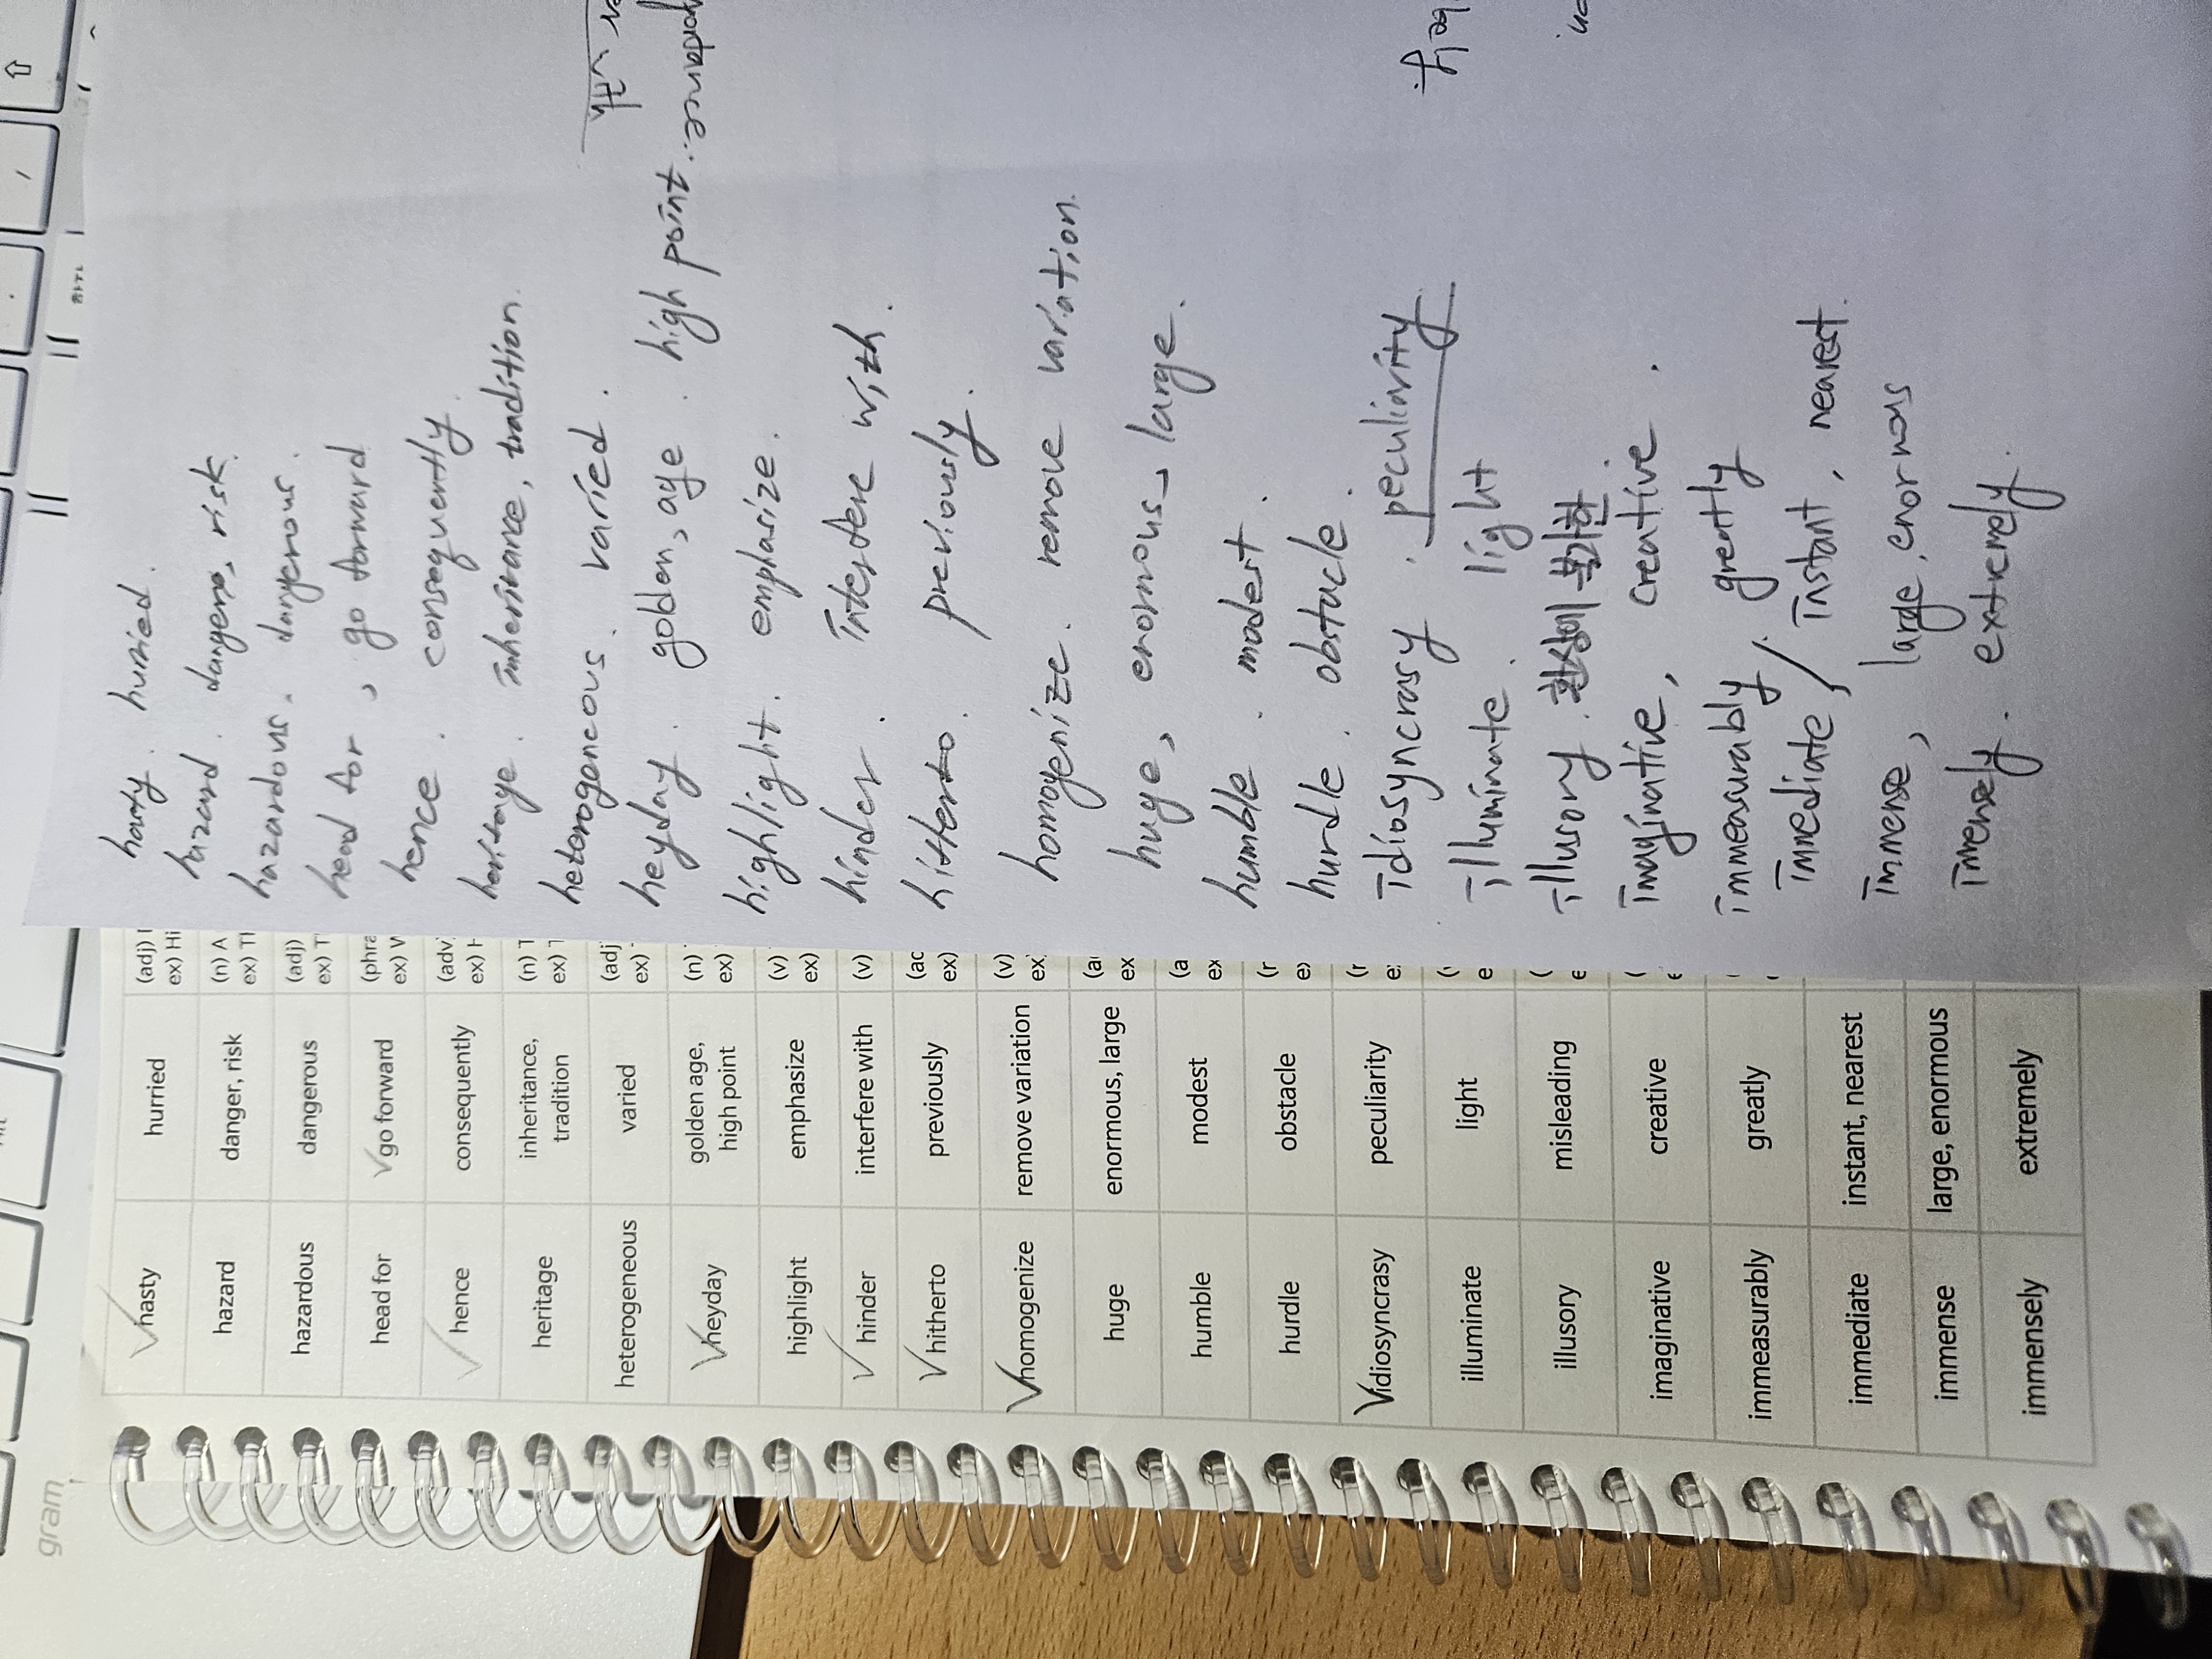 hasty hurried (adj)
ex) Hi
hazard danger, risk (n) A
ex) Tl
hazardous dangerous (adj)
ex) T
head for go forward (phra
ex) W
hence consequently (adv.
ex) H
heritage inheritance, tradition (n) T
ex)
heterogeneous varied (adj
ex)
heyday golden age, high point (n)
ex)
highlight emphasize (v)
ex)
hinder interfere with (v)
hitherto previously
ex)
homogenize remove variation (v)
ex
huge enormous, large
ex
humble modest
ex
hurdle obstacle
idiosyncrasy peculiarity
illuminate light
illusory misleading
imaginative creative
immeasurably greatly
immediate instant, nearest
immense large, enormous
immensely extremely
hasty. hurried.
hazard. dangers, risk.
hazardous. dangerous.
head for, go forward
hence. consequently.
heritage. inheritance, tradition.
heterogeneous. varied.
heyday. golden, age. high point.
highlight. emphasize.
hinder. interfere with.
hitherto. previously.
homogenize. remove variation.
huge, enormous, large.
humble. modest.
hurdle. obstacle.
idiosyncrasy. peculiarity
illuminate. light
illusory. 환상에 불과한.
imaginative, creative.
immeasurably. greatly
immediate, instant, nearest.
immense, large, enormous
imensely. extremely.
gram